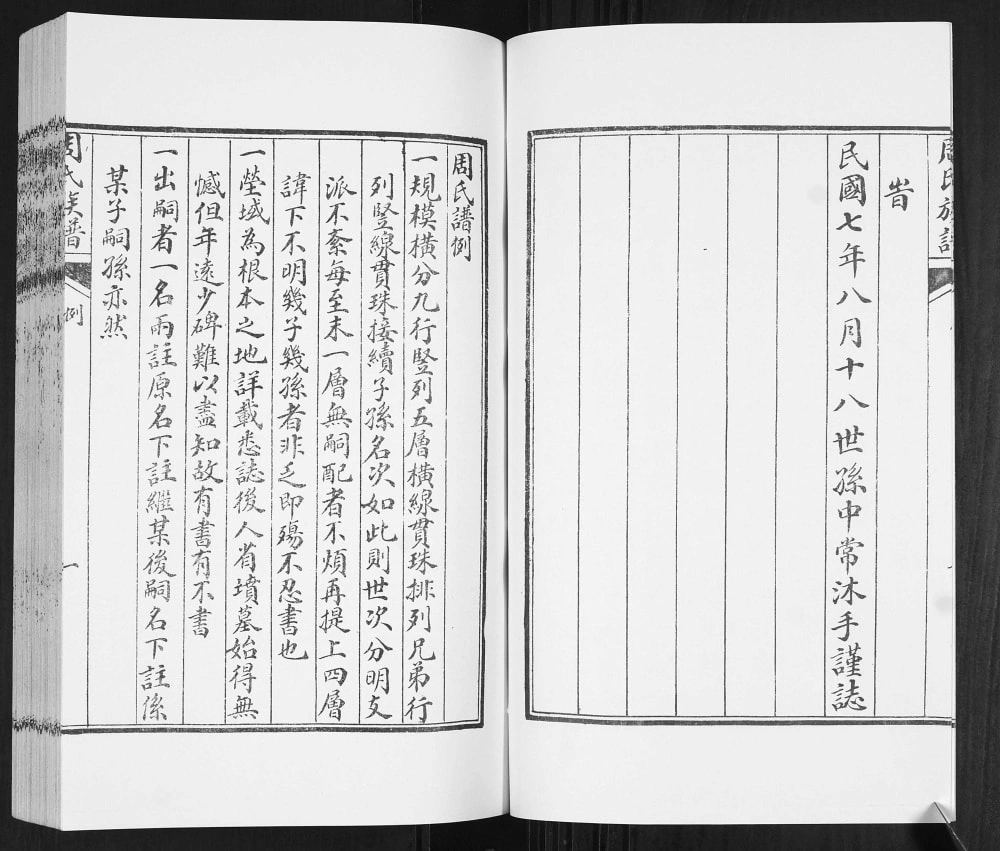 旹
民國七年八月十八世孫中常沐手謹誌
周氏譜例
一規模橫分九行豎列五層橫線貫珠排列兄弟行
列豎線貫珠接續子孫名次如此則世次分明支
派不紊每至末一層無嗣配者不煩再提上四層
諱下不明幾子幾孫者非乏即殤不忍書也
一塋域為根本之地詳載悉誌後人省墳墓始得無
憾但年遠少碑難以盡知故有書有不書
一出嗣者一名兩註原名下註繼某後嗣名下註係
某子嗣孫亦然
周氏族譜
例
一